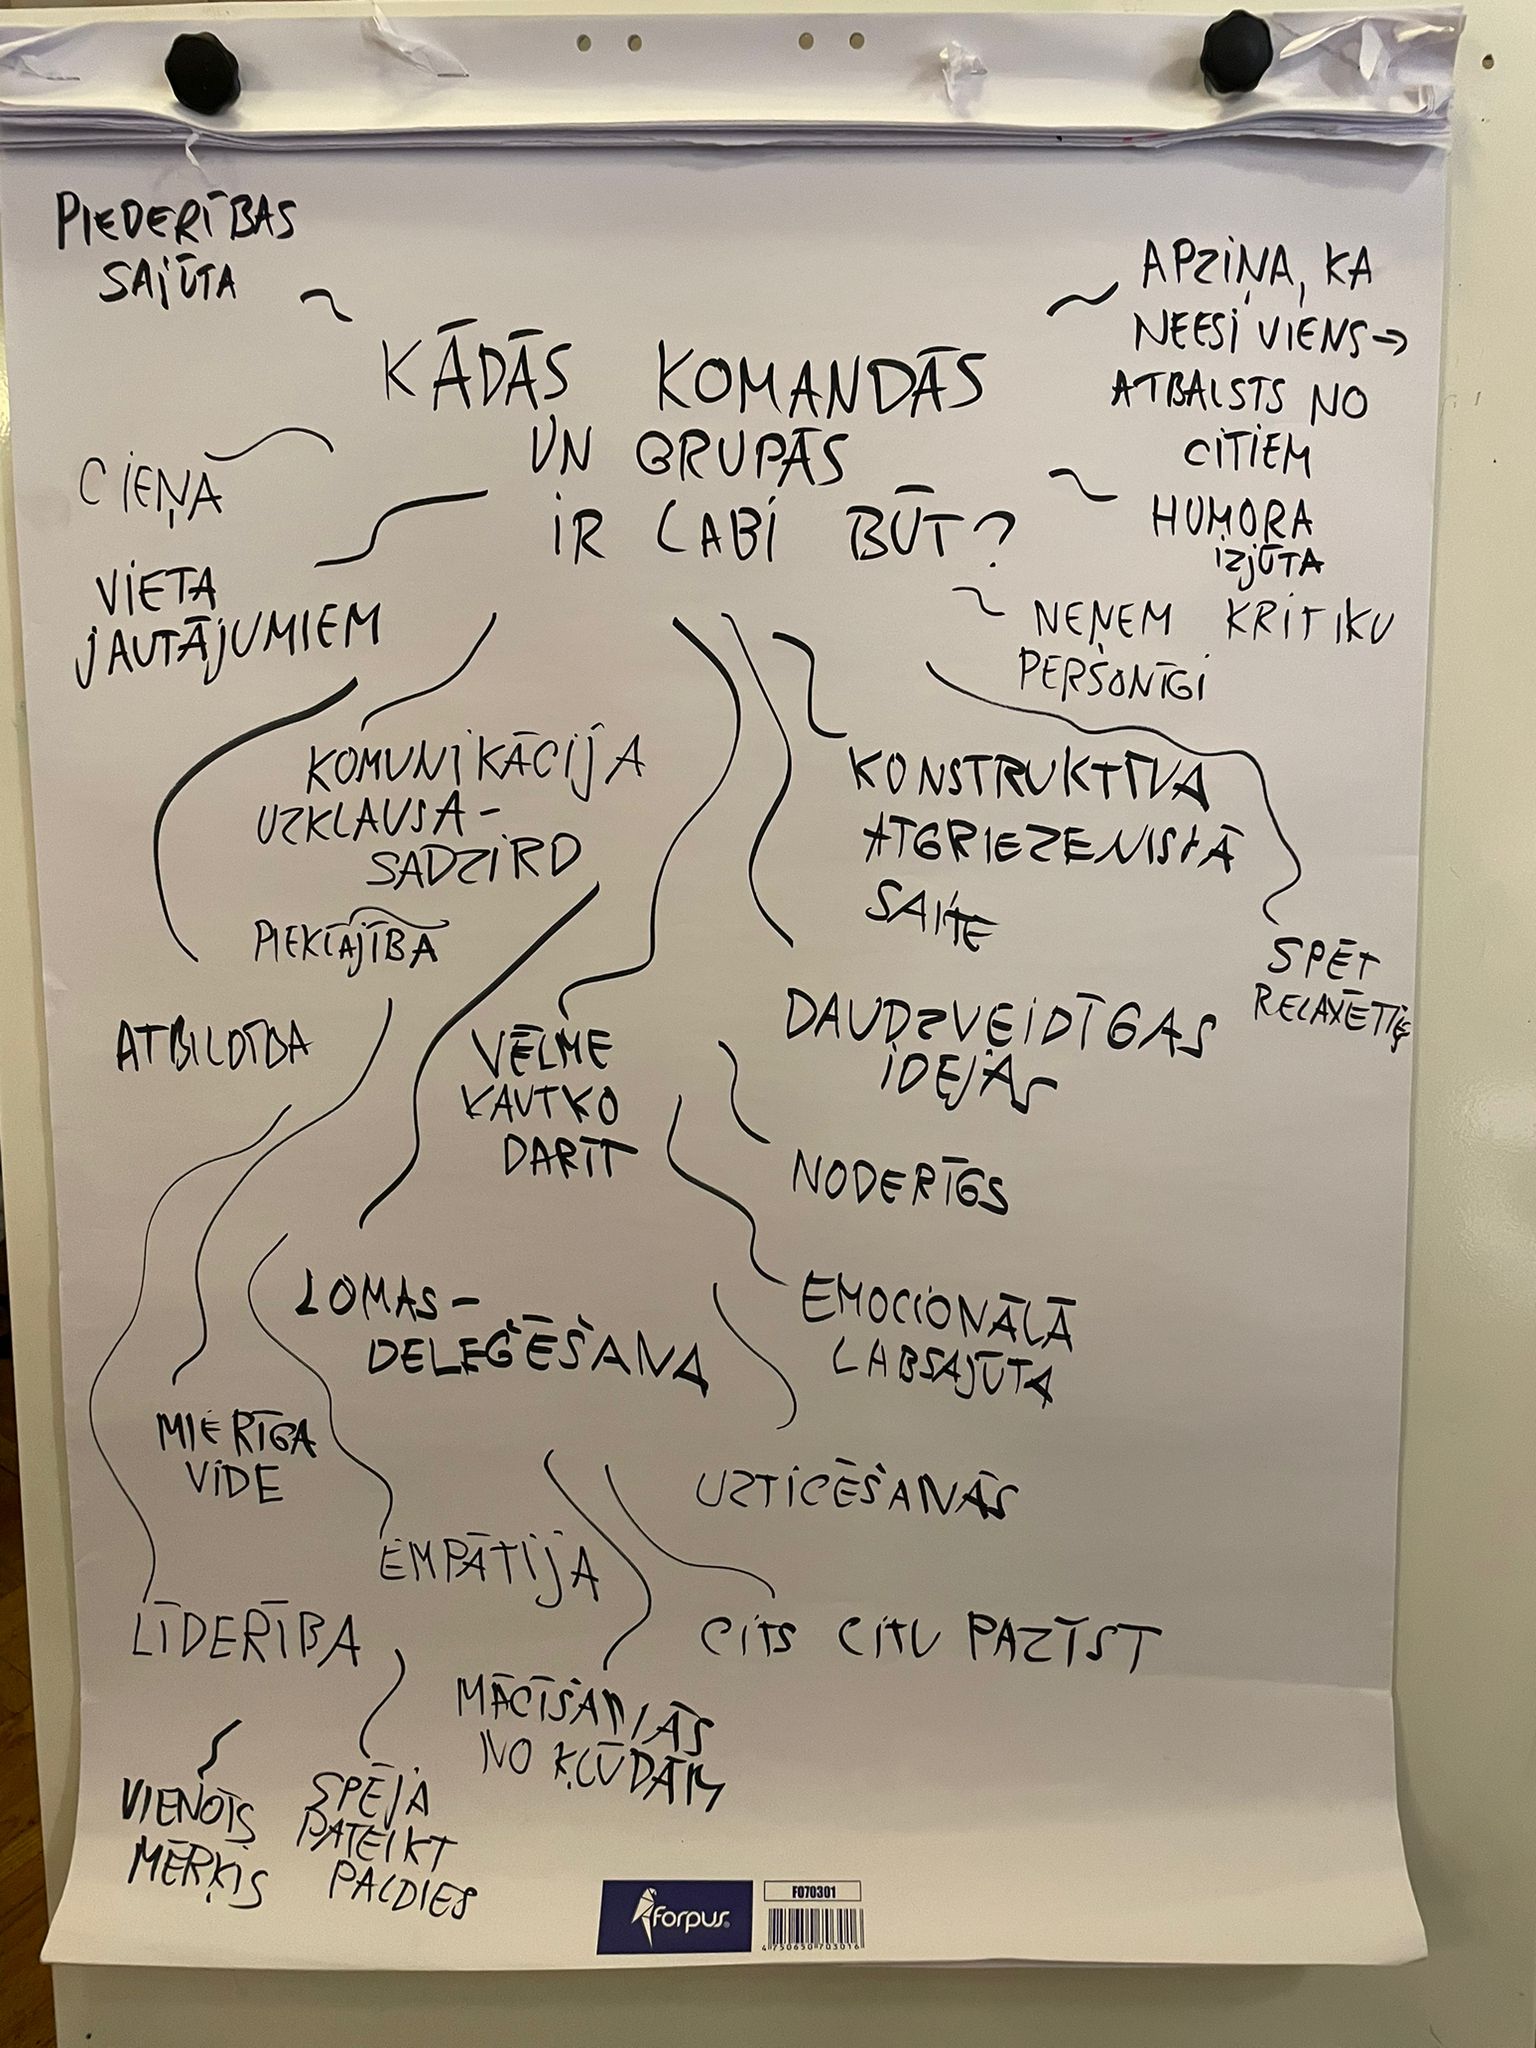 PIEDERĪBAS
SAJŪTA
APZIŅA, KA
NEESI VIENS →
ATBALSTS NO
CITIEM
KĀDĀS KOMANDĀS
UN GRUPĀS
IR LABI BŪT?
CIEŅA
HUMORA
IZJŪTA
VIETA
JAUTĀJUMIEM
NEŅEM KRITIKU
PERSONĪGI
KOMUNIKĀCIJA
UZKLAUSA -
SADZIRD
KONSTRUKTĪVA
ATGRIEZENISKĀ
SAITE
PIEKĻAJĪBA
SPĒT
RELAXĒTIES
ATBILDĪBA
VĒLME
KAUTKO
DARĪT
DAUDZVEIDĪGAS
IDEJAS
NODERĪGS
LOMAS -
DELEĢĒŠANA
EMOCIONĀLĀ
LABSAJŪTA
MIERĪGA
VIDE
UZTICĒŠANĀS
EMPĀTIJA
LĪDERĪBA
CITS CITU PAZĪST
MĀCĪŠANĀS
NO KĻŪDĀM
VIENOTS
MĒRĶIS
SPĒJA
PATEIKT
PALDIES
forpus
FO70301
4 750650 703016